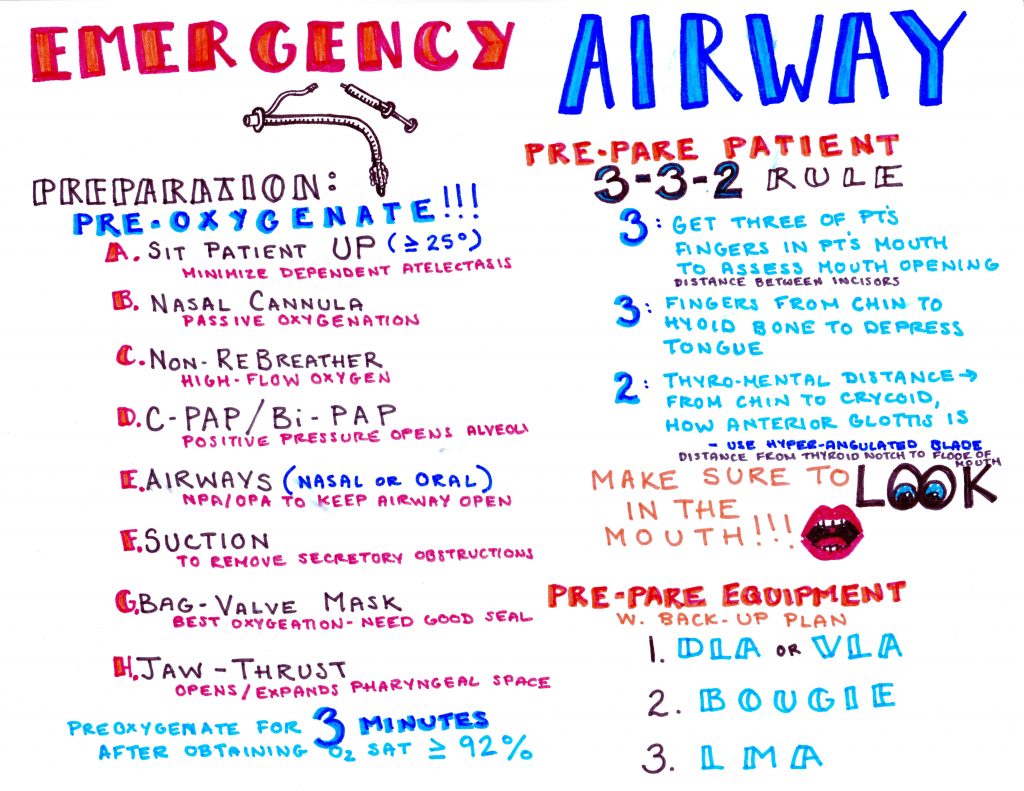 EMERGENCY AIRWAY
PREPARATION:
PRE-OXYGENATE!!!
A. SIT PATIENT UP (≥25°)
MINIMIZE DEPENDENT ATELECTASIS
B. NASAL CANNULA
PASSIVE OXYGENATION
C. NON-REBREATHER
HIGH-FLOW OXYGEN
D. C-PAP/Bi-PAP
POSITIVE PRESSURE OPENS ALVEOLI
E. AIRWAYS (NASAL OR ORAL)
NPA/OPA TO KEEP AIRWAY OPEN
F. SUCTION
TO REMOVE SECRETORY OBSTRUCTIONS
G. BAG-VALVE MASK
BEST OXYGEATION- NEED GOOD SEAL
H. JAW-THRUST
OPENS/EXPANDS PHARYNGEAL SPACE
PREOXYGENATE FOR 3 MINUTES
AFTER OBTAINING O2 SAT ≥ 92%
PRE-PARE PATIENT
3-3-2 RULE
3: GET THREE OF PT'S
FINGERS IN PT'S MOUTH
TO ASSESS MOUTH OPENING
DISTANCE BETWEEN INCISORS
3: FINGERS FROM CHIN TO
HYOID BONE TO DEPRESS
TONGUE
2: THYRO-MENTAL DISTANCE →
FROM CHIN TO CRYCOID,
HOW ANTERIOR GLOTTIS IS
- USE HYPER-ANGULATED BLADE
DISTANCE FROM THYROID NOTCH TO FLOOR OF
MOUTH
MAKE SURE TO LOOK
IN THE
MOUTH!!!
PRE-PARE EQUIPMENT
W. BACK-UP PLAN
1. DLA OR VLA
2. BOUGIE
3. LMA